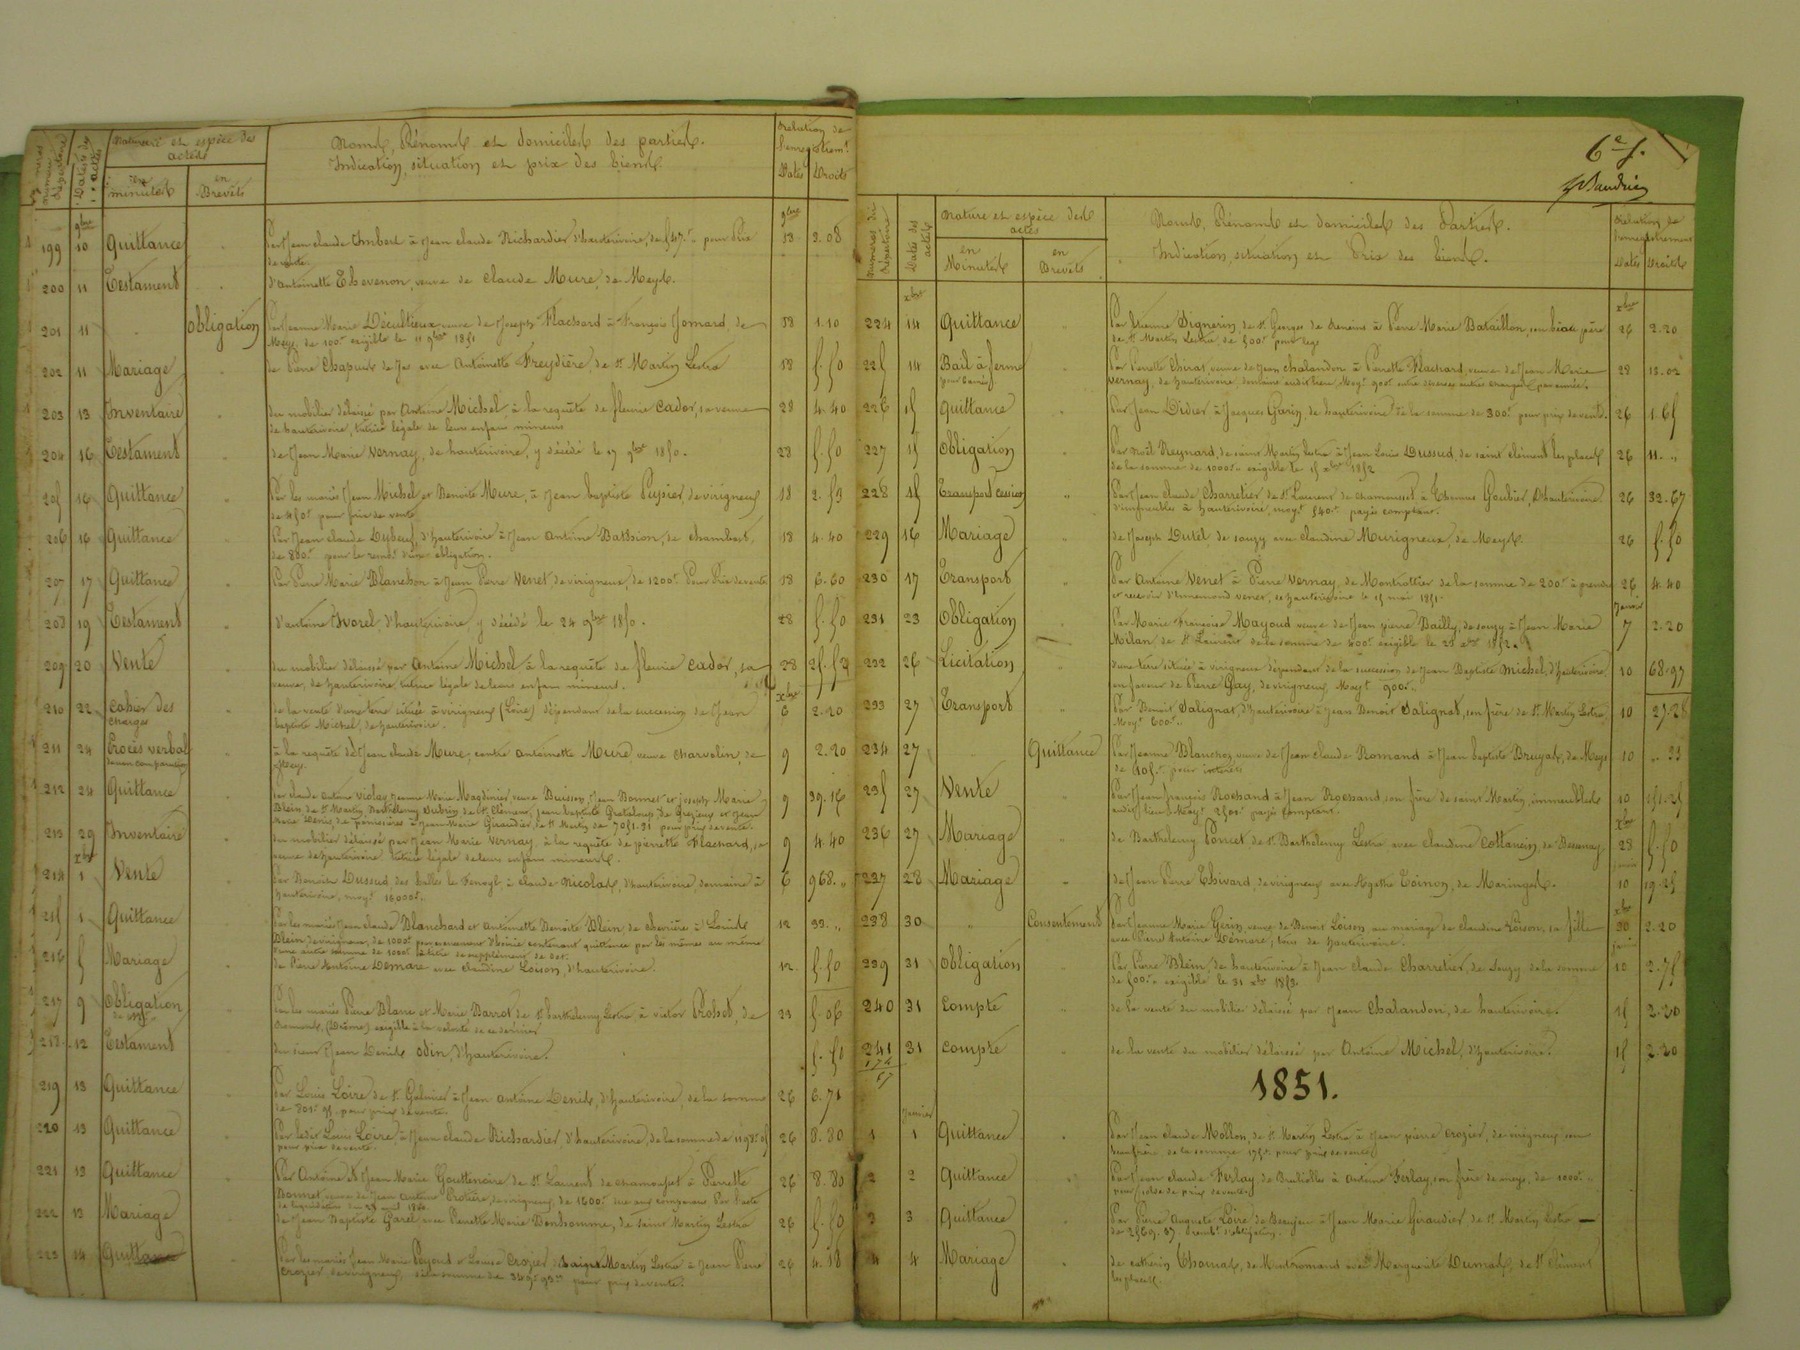 Numéros Répertoire
Dates des actes
Nature et espèce des actes
en minutes
en Brevets
Noms, Prénoms et domiciles des parties.
Indication, situation et prix des biens.
Relation de l'enregistremt
Dates Droits
9bre 9bre
199 10 Quittance Par Jean claude Imbert à Jean claude Richardier d'hauterivoire, de 547.f pour Prix 18 2.08
de vente.
200 11 Testament d'Antoinette Thevenon, veuve de Claude Mure, de Meys.
201 11 Obligation Par Jeanne Marie Décultieux veuve de Joseph Flachard à François Jomard, de 18 1.10
Meys, de 100f exigible le 11 9bre 1851
202 11 Mariage de Pierre Chapuis de Jas avec Antoinette Freydière, de St Martin Lestra 18 5.50
203 13 Inventaire du mobilier délaissé par Antoine Michel, à la requête de fleurie Cador, sa veuve 28 4.40
de hauterivoire, tutrice légale de leurs enfans mineurs
204 16 Testament de Jean Marie Vernay, de hauterivoire, y décédé le 17 9bre 1850. 28 5.50
205 16 Quittance Par les mariés Jean Michel et Benoite Mure, à Jean baptiste Pupier de virigneux 18 2.53
de 450f pour prix de vente
206 16 Quittance Par Jean claude Dubeuf, d'hauterivoire à Jean Antoine Bathion, de chambost, 18 4.40
de 800f pour le rembt d'une obligation.
207 17 Quittance Par Pierre Marie Blanchon à Jean Pierre Venet de virigneux, de 1200f Pour Prix de vente 18 6.60
208 19 Testament d'antoine Yvorel, d'hauterivoire, y décédé le 24 9bre 1850. 28 5.50
209 20 Vente du mobilier délaissé par Antoine Michel à la requête de fleurie Cador, sa 28 25.52
veuve, de hauterivoire tutrice légale de leurs enfans mineurs.
Xbre
210 22 Cahier des charges de la vente d'une terre située à virigneux (Loire) dépendant de la succession de Jean 6 2.20
baptiste Michel, de hauterivoire.
211 24 Procès verbal de non comparution à la requête de Jean claude Mure, contre Antoinette Mure, veuve Charvolin, de 9 2.20
Meys.
212 24 Quittance Par claude Antoine Violay, Jeanne Marie Magdinier, veuve Buisson, Jean Bonnet et Joseph Marie 9 39.16
Blein, de St Martin, Barthélemy Dubruy de St Clément, Jean baptiste Grataloup de Grézieux et Jean
Marie Denis, de panissières à Jean Marie Giraudier, de St Martin de 7051.31 pour prix de vente.
213 29 Inventaire du mobilier délaissé par Jean Marie Vernay, à la requête de pierrette Flachard, sa 9 4.40
veuve de hauterivoire tutrice légale de leurs enfans mineurs.
Xbre
214 1 Vente Par Benoit Dussud des halles le Fenoyl à claude Nicolas, d'hauterivoire, domaine à 6 968.„
hauterivoire, moyt 16000f.
215 1 Quittance Par les mariés Jean claude Blanchard et Antoinette Benoite Blein de chevrière à Louis 12 33.„
Blein, de virigneux, de 1000f pour avancement d'hoirie contenant quittance par les mêmes au même
d'une autre somme de 1000f à titre de supplément de dot.
216 5 Mariage de Pierre Antoine Démare avec Claudine Loison, d'hauterivoire. 12 5.50
217 9 Obligation Par les mariés Pierre Blanc et Marie Barrot de St barthélemy Lestra à victor Probot, de 23 5.06
(Drôme) exigible à la volonté de ce dernier
218 12 Testament du sieur Jean Denis Odin, d'hauterivoire. 5.50
219 13 Quittance Par Louis Loire de St Galmier à Jean Antoine Denis, d'hauterivoire, de la somme 26 6.71
pour prix de vente.
220 13 Quittance Par ledit Louis Loire, à Jean claude Richardier d'hauterivoire, de la somme de 26 8.80
pour prix de vente.
221 13 Quittance Par Antoine et Jean Marie Gouttenoire de St Laurent de chamousset à Pierrette 26 8.80
Bonnet, veuve de Jean Antoine Crozier, de virigneux, de 1600f due aux comparans Par l'acte
de liquidation du 28 avril 1850.
222 13 Mariage de Jean Baptiste Garel avec Pierrette Marie Bonhomme, de saint Martin Lestra 26 5.50
223 14 Quittance Par les mariés Jean Marie Poyard et Louise Crozier de saint Martin Lestra à Jean Pierre 26 4.18
Crozier de virigneux, de la somme de pour prix de vente.
6e f.
Baudrier
Numéros du Répertoire
Dates des actes
Nature et espèce des actes
en Minutes
en Brevets
Noms, Prénoms et domiciles des Parties.
Indication, situation et Prix des biens.
Relation de l'enregistrement
Dates Droits
xbre xbre
224 14 Quittance Par Etienne Dignerin, de St Georges de Reneins à Pierre Marie Bataillon, son beau père 26 2.20
de St Martin Lestra, de 500f pour legs
225 14 Bail à ferme Par Pierrette Thivat, veuve de Jean Chalandon à Pierrette Flachard, veuve de Jean Marie 28 13.02
Vernay, de hauterivoire, domaine audit lieu, Moyt 900f outre diverses autres charges, par année.
226 15 Quittance Par Jean Didier à Jacques Garin, de hauterivoire de la somme de 300f pour prix de vente. 26 1.65
227 15 Obligation Par Noël Reynard, de saint Martin Lestra à Jean Louis Dussud, de saint Clément les places 26 11.„
de la somme de 1000f exigible le 15 xbre 1852
228 15 Transport cession Par Jean claude Charretier de St Laurent de Chamousset à Thomas Goubier, d'hauterivoire 26 32.67
d'immeubles à hauterivoire, moyt 540f payés comptant.
229 16 Mariage de Joseph Dutel de souzy avec Claudine Murigneux, de Meys. 26 5.50
230 17 Transport Par Antoine Venet à Pierre Vernay, de Montrottier de la somme de 200f à prendre 26 4.40
et recevoir d'Ennemond Venet, de hauterivoire le 15 mai 1851.
Janvier
231 23 Obligation Par Marie Françoise Mayoud veuve de Jean pierre Bailly, de souzy à Jean Marie 7 2.20
Milan, de St Laurent de la somme de 200f exigible le 25 xbre 1852.
232 26 Licitation d'une terre située à virigneux dépendant de la succession de Jean Baptiste Michel, d'hauterivoire 10 68.97
en faveur de Pierre Gay, de virigneux, Moyt 900f.
233 27 Transport Par Benoit Salignat, d'hauterivoire à Jean Benoit Salignat, son frère de St Martin Lestra, 10 27.28
Moyt 600f.
234 27 Quittance Par Jeanne Blanchoz veuve de Jean claude Romand à Jean baptiste Bruyas, de Meys 10 „.33
de 105f pour intérêts
235 27 Vente Par Jean françois Rossand à Jean Rossand, son frère de saint Martin, immeubles 10 151.25
audit lieu, Moyt 2501f payés Comptant.
Xbre
236 27 Mariage de Barthélemy Poncet, de St Barthélemy Lestra, avec Claudine Cottancin, de Bessenay. 28 5.50
janvier
237 28 Mariage de Jean Pierre Thivard, de virigneux avec Agathe Coinon, de Maringes. 10 19.25
xbre
238 30 Consentement Par Jeanne Marie Gerin, veuve de Benoit Loison, au mariage de Claudine Loison, sa fille 30 2.20
avec Pierre Antoine Démare, tous de hauterivoire.
janvier
239 31 Obligation Par Pierre Blein, de hauterivoire à Jean Claude Charretier, de Souzy de la somme 10 2.75
de 500f exigible le 31 xbre 1853.
240 31 Compte de la vente du mobilier délaissé par Jean Chalandon, de hauterivoire. 15 2.20
241 31 Compte de la vente du mobilier délaissé par Antoine Michel, d'hauterivoire. 15 2.20
174
67
1851.
Janvier
1 1 Quittance Par Jean claude Mollon, de St Martin Lestra à Jean pierre Crozier, de virigneux, son
beau frère, de la somme 175f pour prix de vente
2 2 Quittance Par Jean claude Ferlay, de Brullioles à Antoine Ferlay, son frère de meys, de 1000f
pour solde de prix de vente
3 3 Quittance Par Pierre Auguste Loire de Beaujeu à Jean Marie Giraudier de St Martin Lestra
de 2569.87 d'obligation.
4 4 Mariage de cathérin Thomas, de Montromand avec Marguerite Dumas, de St Clément
les places.